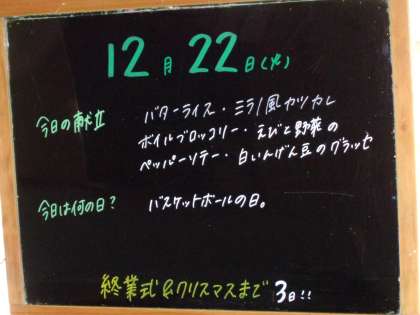 12月22日(火)
今日の献立 バターライス・ミラノ風カツカレ
ボイルブロッコリー・えびと野菜の
ペッパーソテー・白いんげん豆のグラッセ
今日は何の日? バスケットボールの日。
終業式&クリスマスまで 3日!!